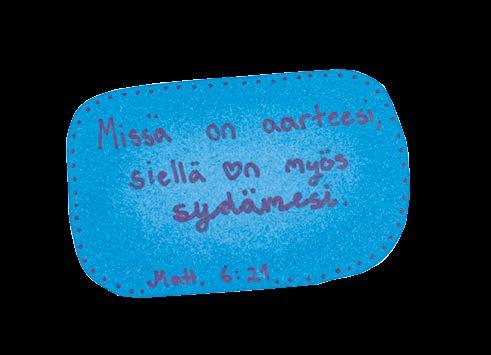 Missä on aarteesi,
siellä on myös
sydämesi.
Matt. 6:21